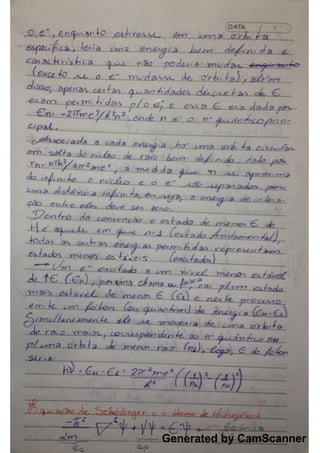 DATA
o e⁻, enquanto estivesse em uma órbita
específica, teria uma energia bem definida e
característica que não poderia mudar enquanto
(exceto se o e⁻ mudasse de órbita), além
disso, apenas certas quantidades discretas de E
eram permitidas p/ o e⁻, e essa E era dada por
En = -2π²me⁴/h²n², onde n é o nº quântico prin-
cipal.
Associada a cada energia há uma órbita circular
em volta do núcleo de raio bem definido, dado por
rn = n²h²/4π²me², a medida que n se aproxima
do infinito o núcleo e o e⁻ são separados por
uma distância infinita, ou seja, a energia de intera-
ção entre eles deve ser zero.
Dentro da convenção o estado de menor E do
H é aquele em que n=1 (estado fundamental),
todas as outras energias permitidas representam
estados menos estáveis (excitados)
→ Um e⁻ excitado a um nível menos estável
de ↑E (EH), por uma chama ou cai p/ um estado
mais estável de menor E (EL) e neste processo
emite um fóton (ou quantum) de energia (EH-EL)
Simultaneamente ele se moveria de uma órbita
de raio maior, correspondente ao nº quântico nH
p/ uma órbita de menor raio (nL), logo, E do fóton
seria:
hν = EH - EL = 2π²me⁴/h² · ((1/nL)² - (1/nH)²)
Equação de Schödinger e o átomo de Hidrogênio
-ħ² ∇²ψ + Vψ = Eψ
2m
Ec Ep
Generated by CamScanner